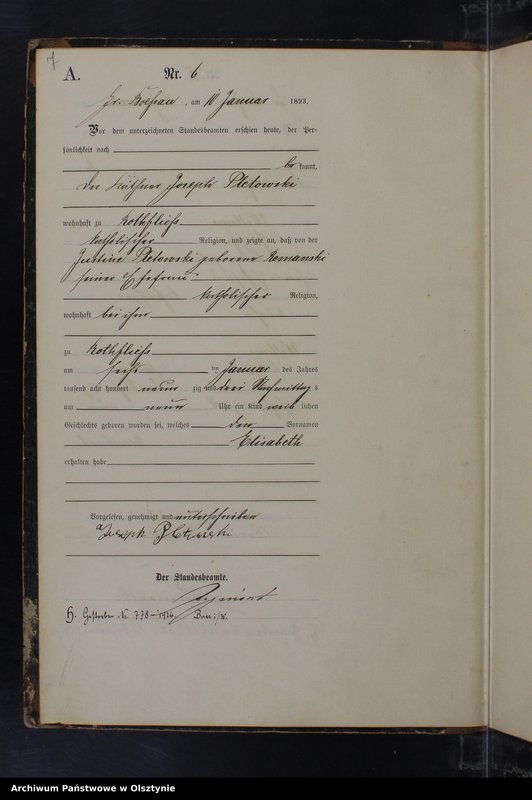 7
A. Nr. 6
Gr. Bößau, am 10 Januar 1893.
Vor dem unterzeichneten Standesbeamten erschien heute, der Per-
sönlichkeit nach
be kannt,
der Käthner Joseph Pletowski
wohnhaft zu Rothfließ
katholischer Religion, und zeigte an, daß von der
Justine Pletowski geborene Romanski
seiner Ehefrau
katholischer Religion,
wohnhaft bei ihm
zu Rothfließ
am sechs ten Januar des Jahres
tausend acht hundert neun zig und drei Nachmittag s
um neun Uhr ein Kind weib lichen
Geschlechts geboren worden sei, welches den Vornamen
Elisabeth
erhalten habe
Vorgelesen, genehmigt und unterschrieben
Joseph Pletowski
Der Standesbeamte.
H. Gestorben Nr. 778-1926
Archiwum Państwowe w Olsztynie